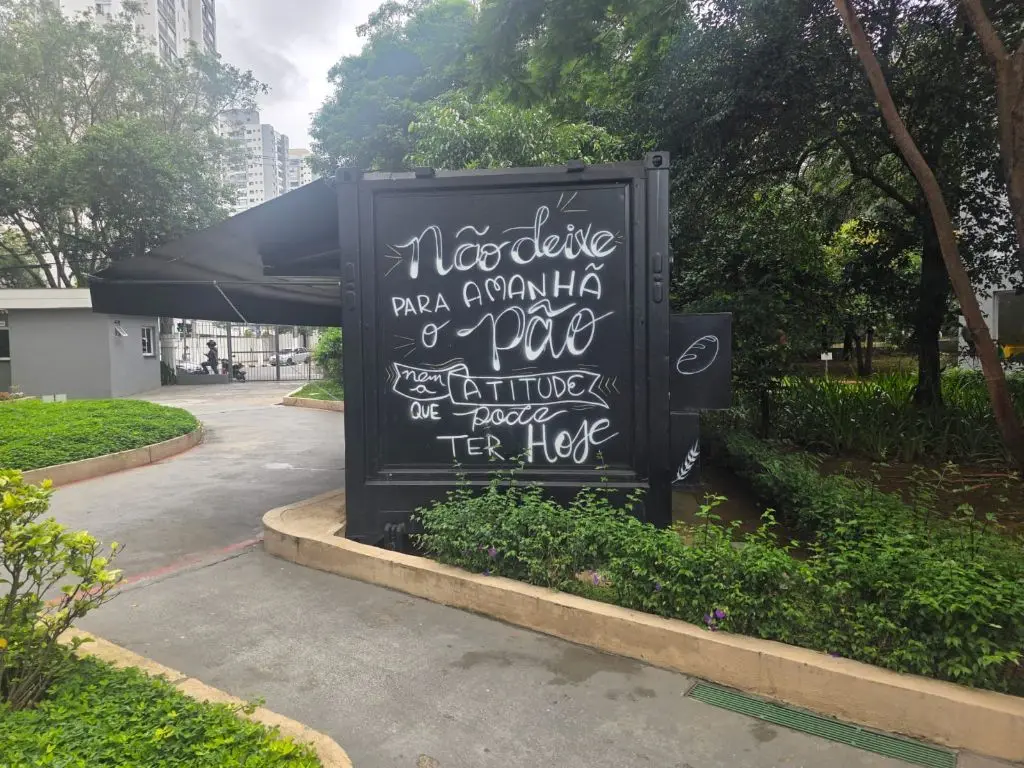 Não deixe
PARA AMANHÃ
o Pão
nem a ATITUDE
QUE pode
TER Hoje